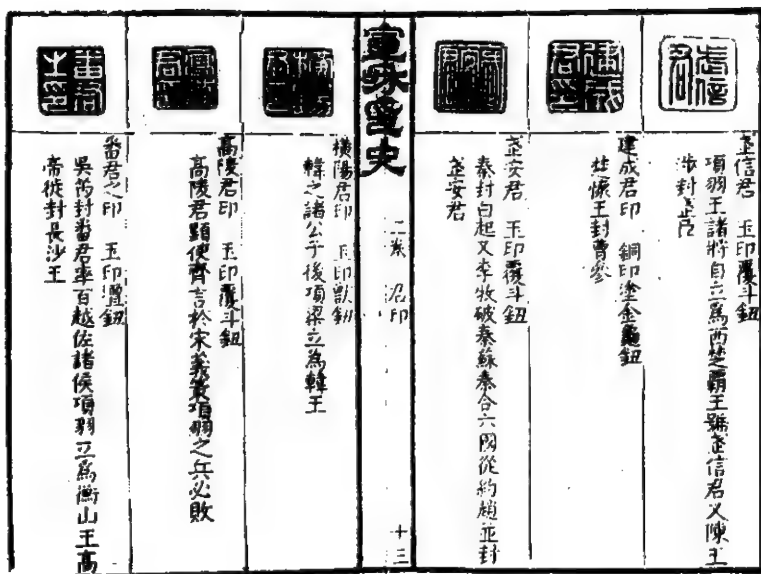 武信君
武信君　玉印覆斗鈕
項羽王諸將自立爲西楚霸王號武信君又陳王
涉封武臣
建成君印
建成君印　銅印塗金龜鈕
楚懷王封曹參
武安君　玉印覆斗鈕
秦封白起又李牧破秦蘇秦合六國從約趙並封
武安君
史
二卷　君印
十三
橫陽君印
橫陽君印　玉印獸鈕
韓之諸公子後項梁立爲韓王
高陵君印
高陵君印　玉印覆斗鈕
高陵君顯使齊言於宋義策項羽之兵必敗
番君之印
番君之印　玉印鈕
吳芮封番君率百越佐諸侯項羽立爲衡山王高
帝徙封長沙王